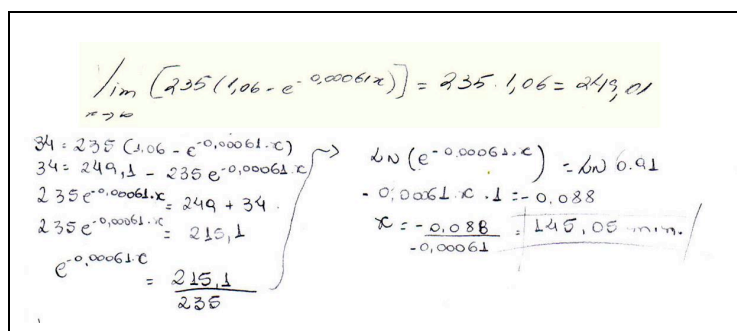 lim [235 (1,06 - e^-0,00061x)] = 235 . 1,06 = 249,01
x → ∞
34 = 235 (1,06 - e^-0,00061.x)
34 = 249,1 - 235 e^-0,00061.x
235 e^-0,00061.x = 249 + 34
235 e^-0,00061.x = 215,1
e^-0,00061.x = 215,1 / 235
LN (e^-0,00061.x) = LN 0.91
- 0,00061.x . 1 = -0,088
x = -0,088 / -0,00061 = 145,05 min.